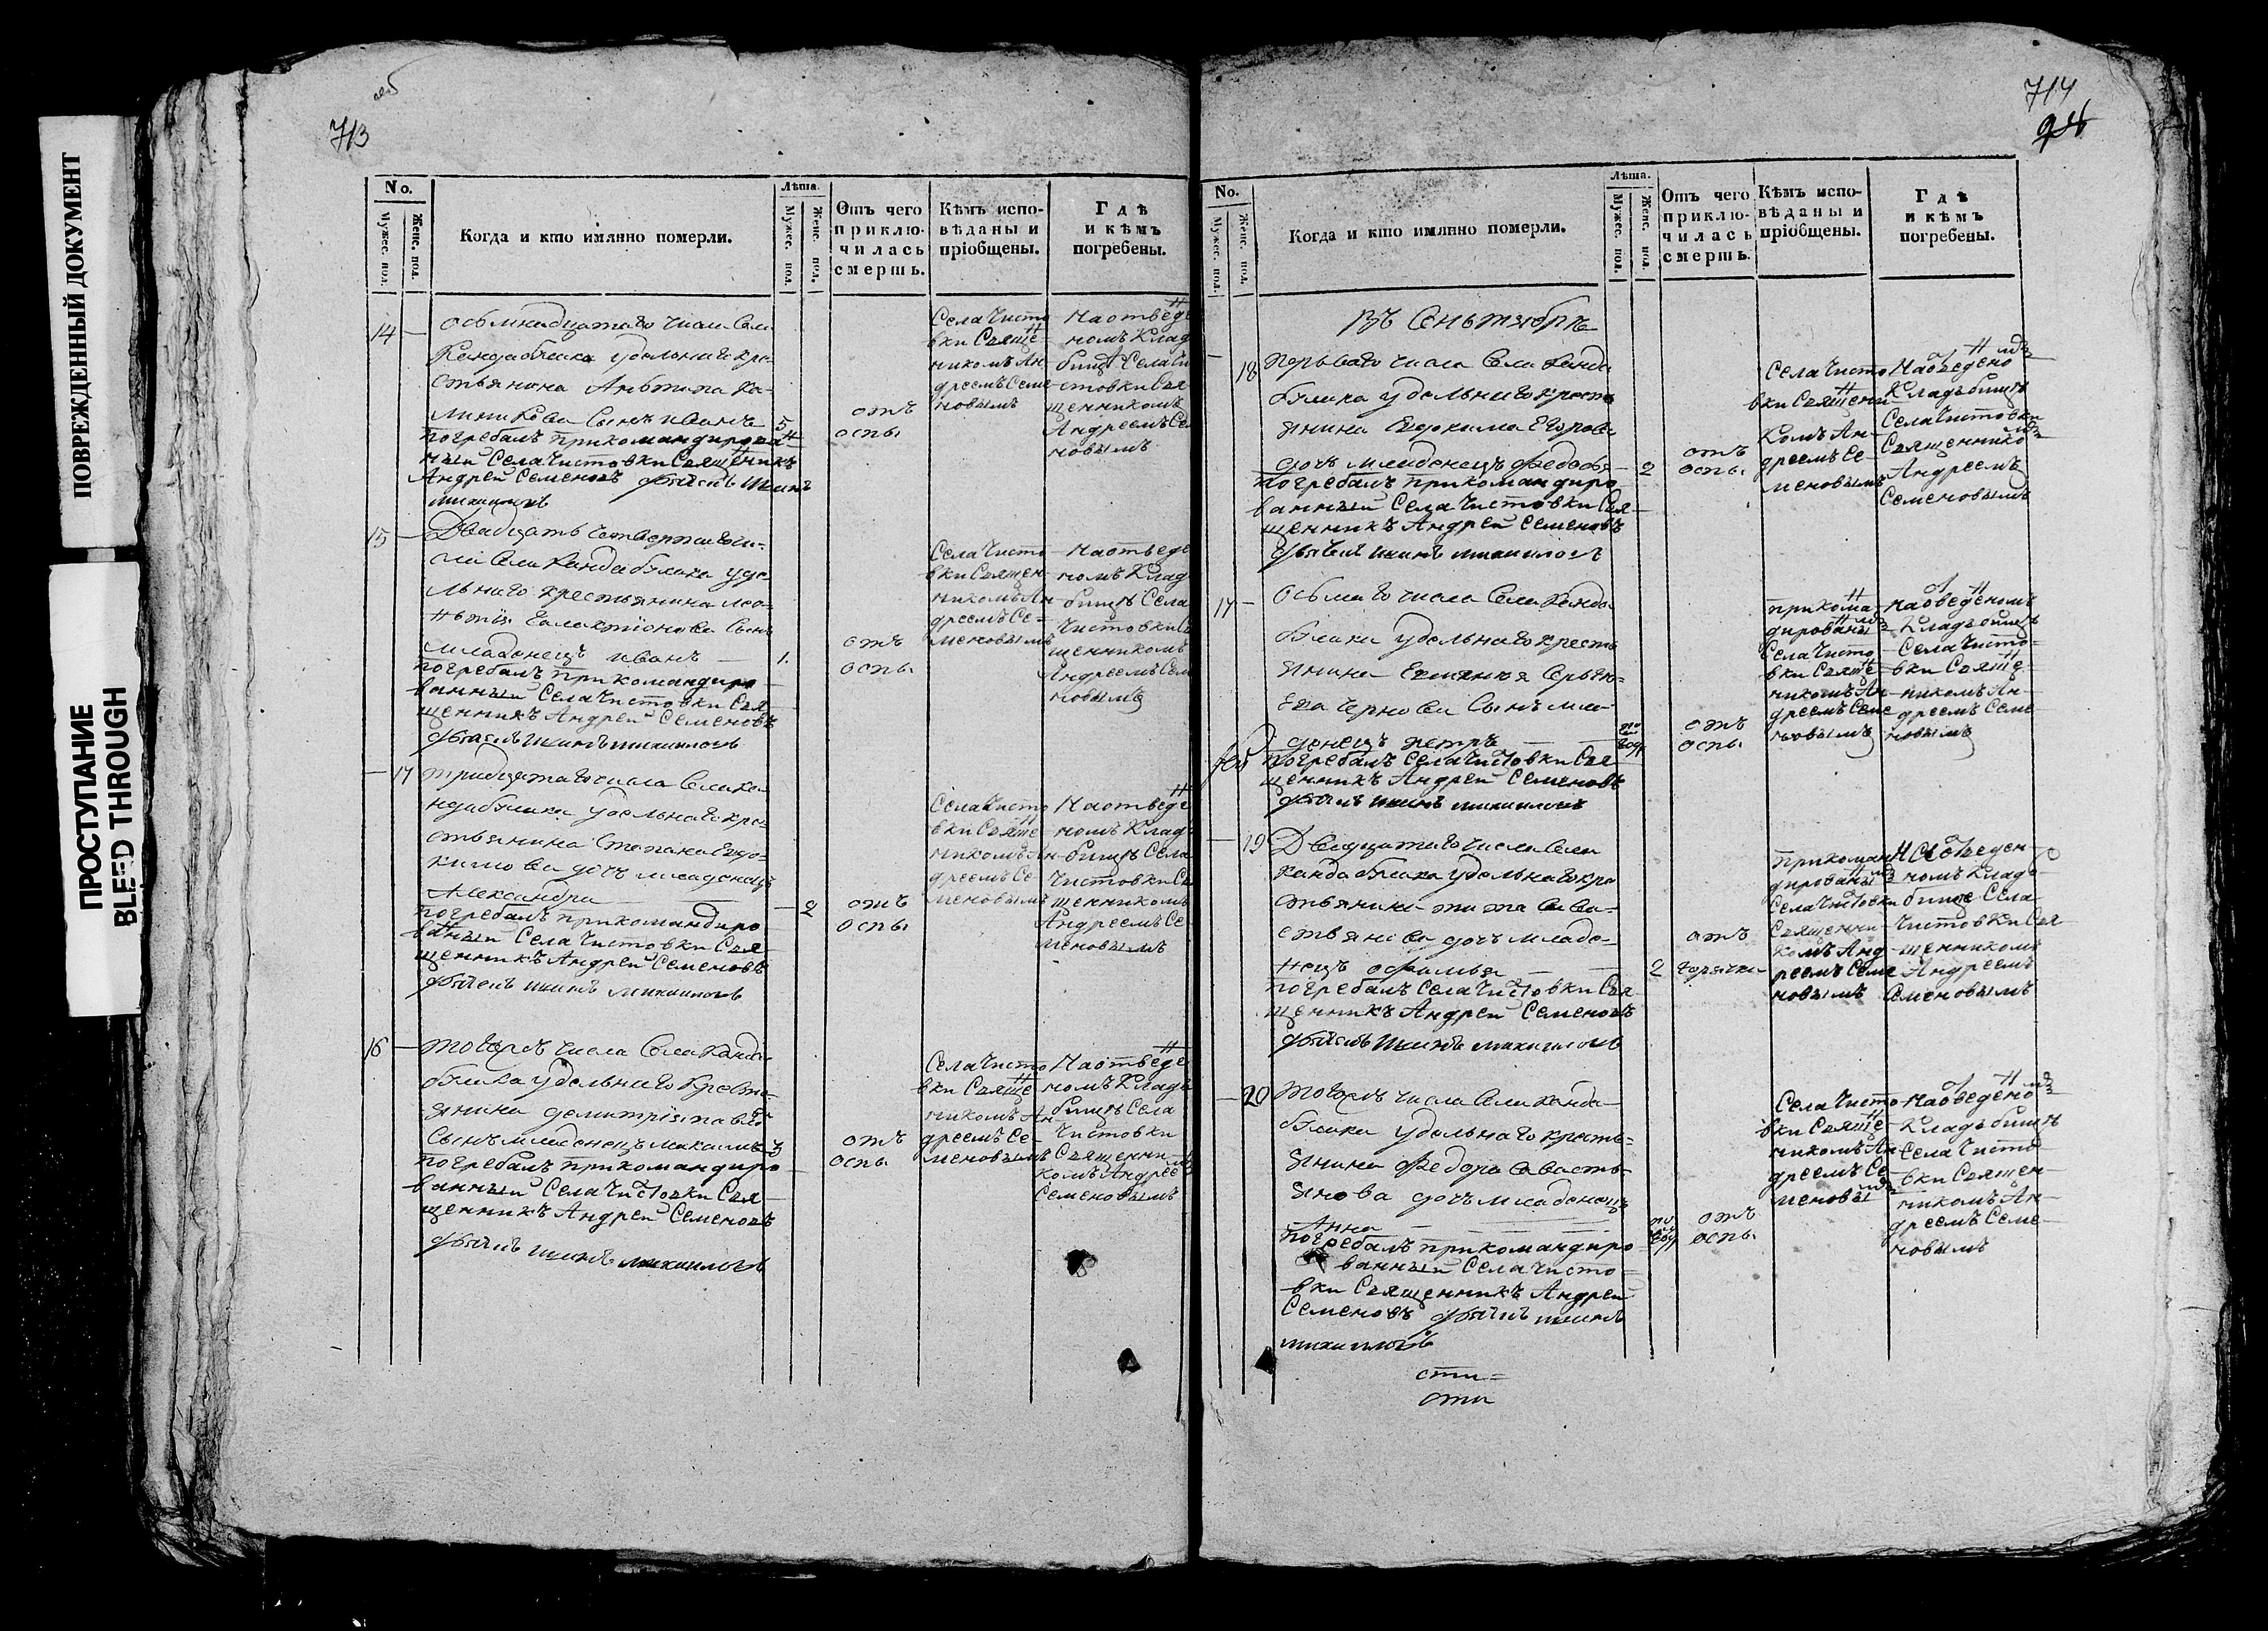 ПОВРЕЖДЕННЫЙ ДОКУМЕНТ
ПРОСТУПАНИЕ
BLED THROUGH
713
No.
Мужес. пол.
Женс. пол.
Когда и кто имянно померли.
Лѣта.
Мужес. пол.
Женс. пол.
Отъ чего
приклю-
чилась
смерть.
Кѣмъ испо-
вѣданы и
пріобщены.
Гдѣ
и кѣмъ
погребены.
14 — осьмнадцатаго числа Села
Кандабулака удѣльнаго кре-
стьянина Антипа Ка-
линикова Сынъ иванъ 5
погребалъ прикомандирова
ный Села Чистовки Священикъ
Андрей Семеновъ
отъ
оспы
Села Чисто
вки Свяще
никомъ Ан-
дреемъ Семе-
новымъ
На отведе
номъ Клад
бищѣ Села Чи
стовки Свя
щенникомъ
Андреемъ Се
новымъ
15 — Двадцать четвертаго чи-
сла Села Кандабулака удѣ-
льнаго крестьянина лео-
нтія Галактіонова Сынъ
младенецъ иванъ — 1.
погребалъ прикомандиро
ванный Села Чистовки Свя
щенникъ Андрей Семеновъ
отъ
оспы
Села Чисто
вки Священ
никомъ Ан
дреемъ Се-
меновымъ
На отведе
номъ Клад
бищѣ Села
Чистовки Св
щенникомъ
Андреемъ Сем
новымъ
— 17 тридцатаго числа Села Ка-
ндабулака удѣльнаго кре-
стьянина Степана Евдо-
кимова дочь младенецъ
Александра — 2
погребалъ прикомандиро
ваный Села Чистовки Свя
щенникъ Андрей Семеновъ
отъ
оспы
Села Чисто
вки Свяще
никомъ Ан
дреемъ Се
меновымъ
На отведе
номъ Клад
бищѣ Села
Чистовки Св
щенникомъ
Андреемъ Се
меновымъ
16 — того жъ числа Села Канда-
булака удѣльнаго Кресть-
янина димитрія
Сынъ младенецъ 3
погребалъ прикомандиро
ванный Села Чистовки Свя
щенникъ Андрей Семеновъ
отъ
оспы
Села Чисто
вки Свяще
никомъ Ан
дреемъ Се-
меновымъ
На отведе
номъ Кладъ
бищѣ Села
Чистовки
Священни
комъ Андрее
Семеновымъ
714
No.
Мужес. пол.
Женс. пол.
Когда и кто имянно померли.
Лѣта.
Мужес. пол.
Женс. пол.
Отъ чего
приклю-
чилась
смерть.
Кѣмъ испо-
вѣданы и
пріобщены.
Гдѣ
и кѣмъ
погребены.
Въ Сеньтябрѣ
— 18 перьваго числа Села Канда
булака удѣльнаго кресть
янина Евдокима Егорова
дочь младенецъ — 2
погребалъ прикомандиро
ванный Села Чистовки Свя
щенникъ Андрей Семеновъ
отъ
оспы
Села Чисто
вки Священи
комъ Ан-
дреемъ Се-
меновымъ
На отведено
Кладъбищѣ
Села Чистовки
Священнико
Андреемъ
Семеновымъ
17 — осьмаго числа Села Канда
булака удѣльнаго кресть
янина
Сынъ мла-
денецъ петръ
погребалъ Села Чистовки Свя
щенникъ Андрей Семеновъ
отъ
оспы
прикома
дированы
Села Чисто
вки Свяще
никомъ Ан
дреемъ Семе
новымъ
На отведеномъ
Кладъбищѣ
Села Чисто-
вки Свяще
никомъ Ан-
дреемъ Семе
новымъ
— 19 Двадцатаго числа Села
Кандабулака удѣльнаго кре
стьянина тита Сева-
стьянова дочь младе-
нецъ — 2
погребалъ Села Чистовки Свя
щенникъ Андрей Семеновъ
отъ
горячки
прикоман
дированы
Села Чистовки
Священни
комъ Анд
реемъ Семе
новымъ
На отведен
номъ Кладъ
бище Села
Чистовки Свя
щенникомъ
Андреемъ
Семеновымъ
— 20 того жъ числа Села Канда-
булака удѣльнаго кресть-
янина Федора Савасть-
янова дочь младенецъ
Анна
погребалъ прикомандиро
ванный Села Чисто-
вки Священникъ Андрей
Семеновъ
отъ
оспы
Села Чисто
вки Свяще
никомъ Ан
дреемъ Се-
меновы
На отведено
Кладъбищѣ
Села Чисто
вки Священ
никомъ Ан-
дреемъ Семе-
новымъ